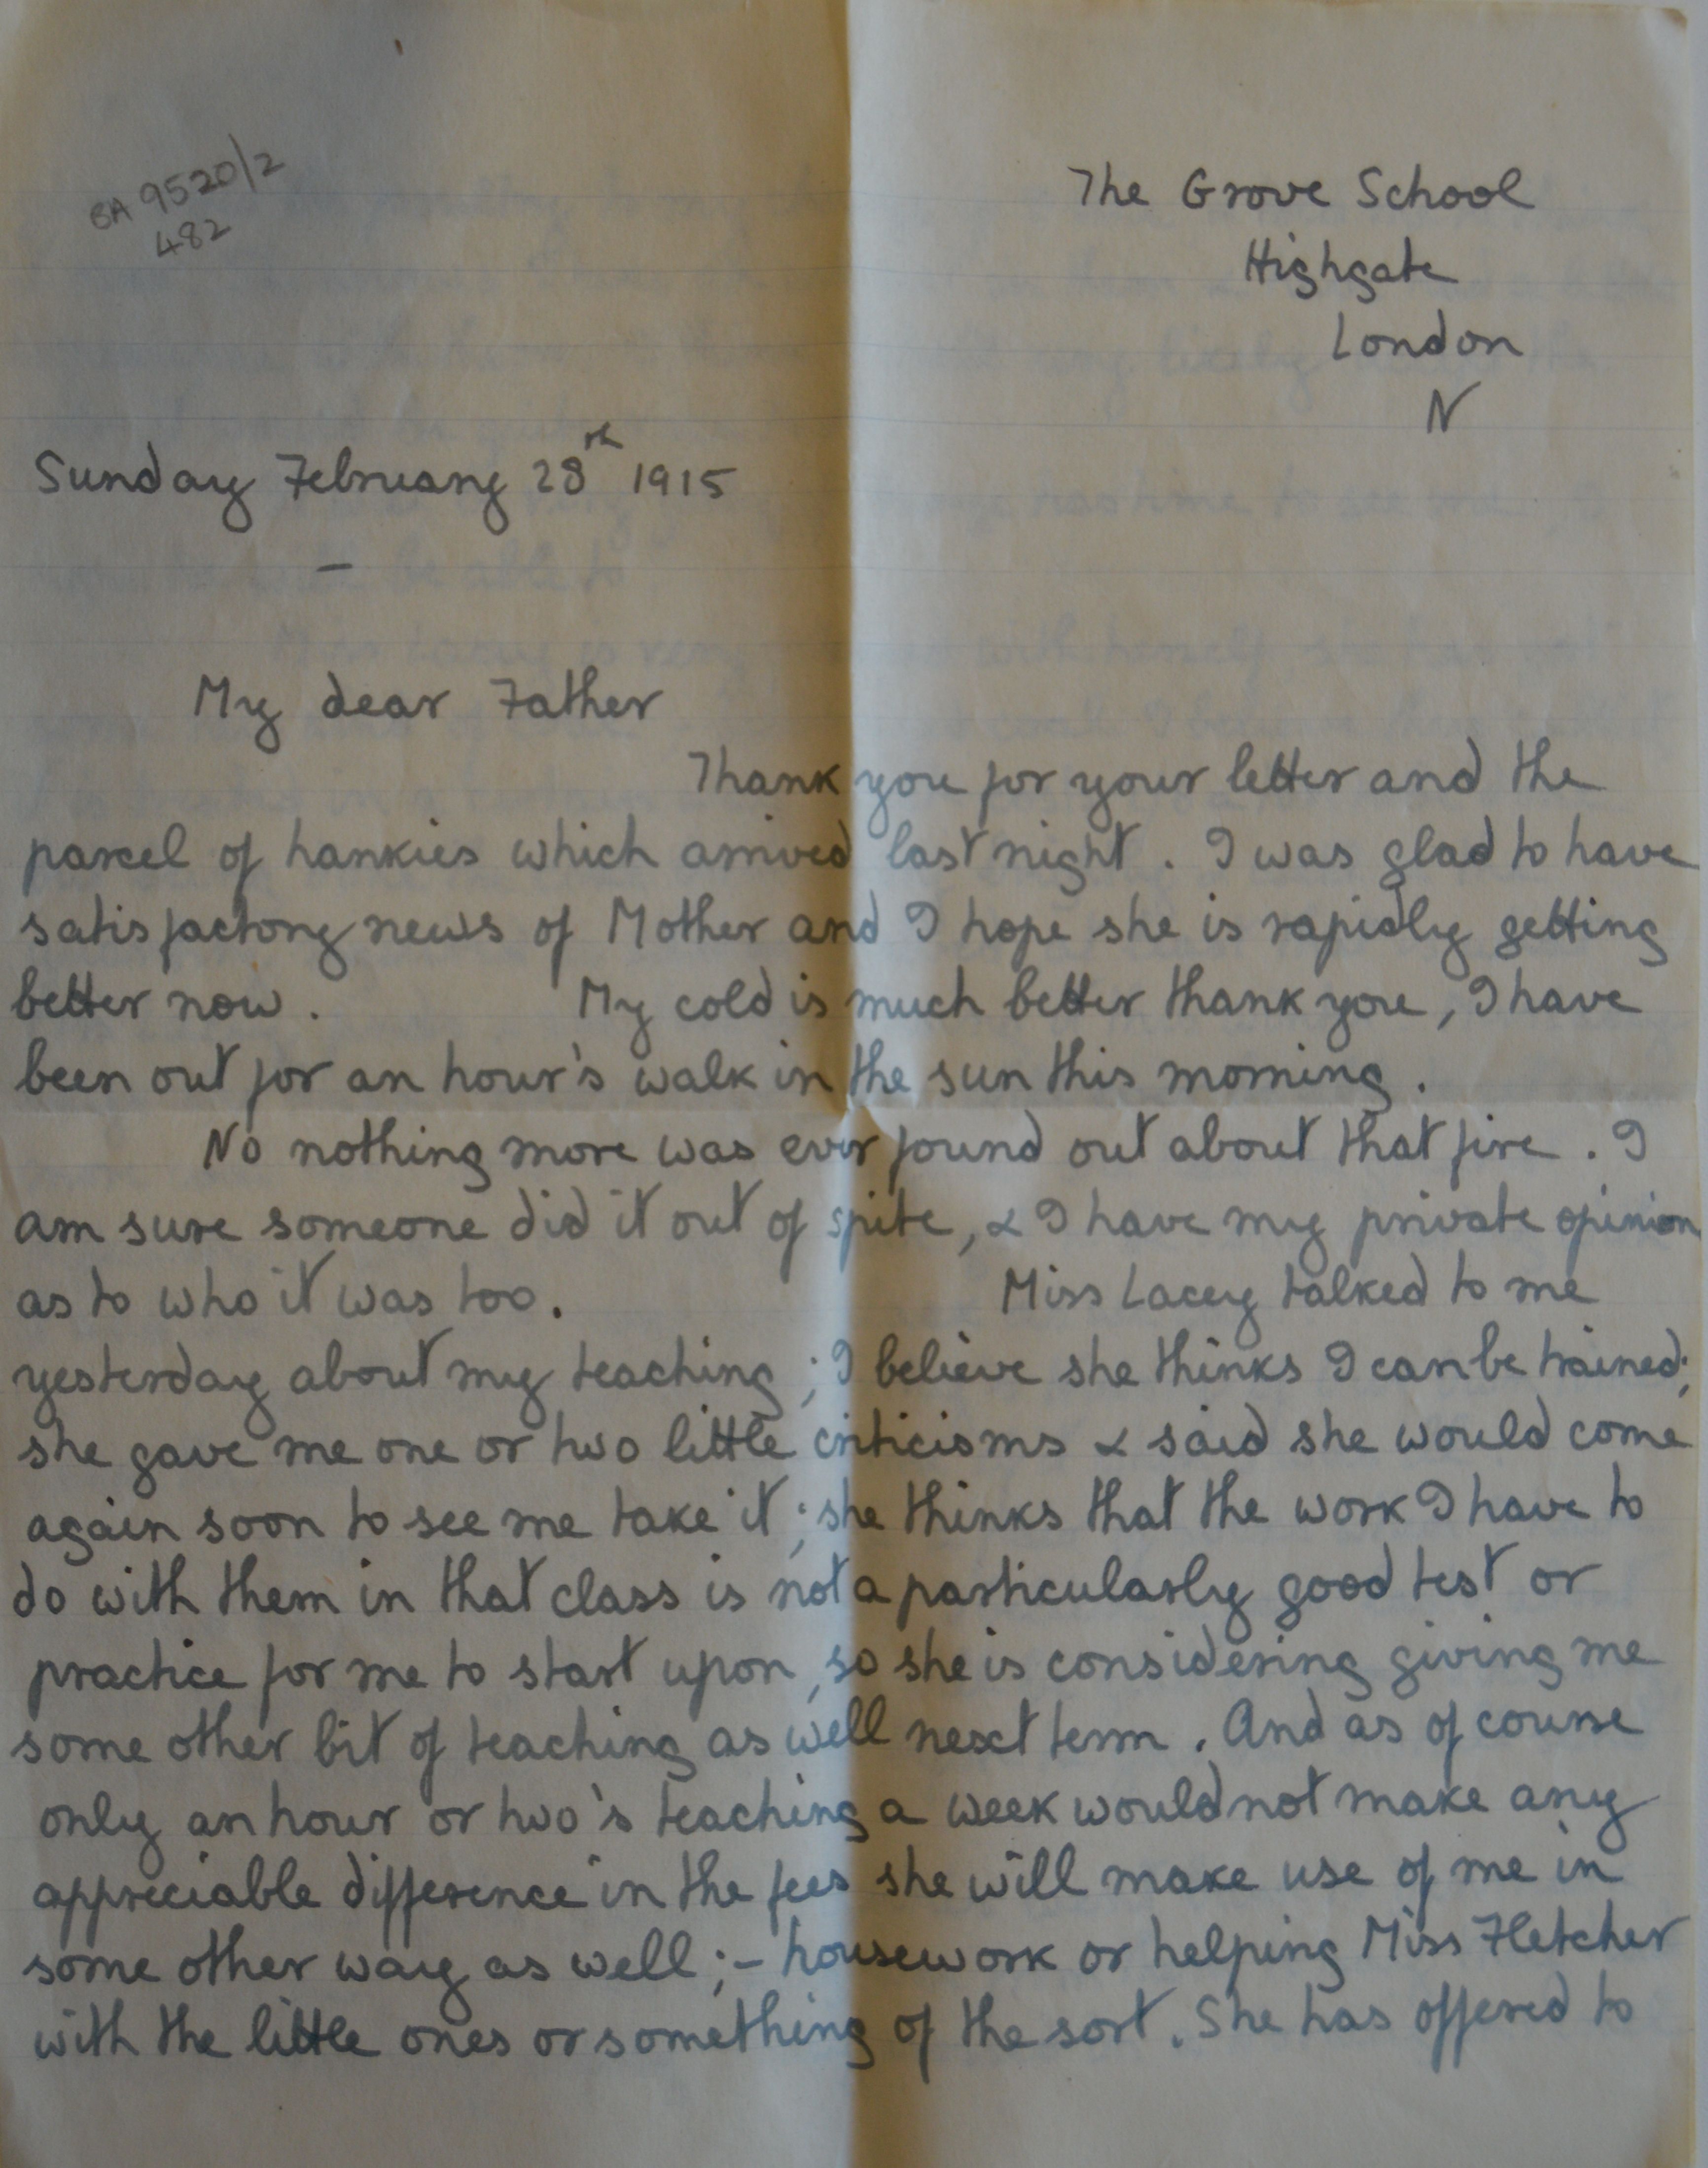 BA 9520/2
482
The Grove School
Highgate
London
N
Sunday February 28th 1915
–
My dear Father
Thank you for your letter and the
parcel of hankies which arrived last night. I was glad to have
satisfactory news of Mother and I hope she is rapidly getting
better now. My cold is much better thank you, I have
been out for an hour's walk in the sun this morning.
No nothing more was ever found out about that fire. I
am sure someone did it out of spite, & I have my private opinion
as to who it was too. Miss Lacey talked to me
yesterday about my teaching; I believe she thinks I can be trained;
she gave me one or two little criticisms & said she would come
again soon to see me take it; she thinks that the work I have to
do with them in that class is not a particularly good test or
practice for me to start upon, so she is considering giving me
some other bit of teaching as well next term. And as of course
only an hour or two's teaching a week would not make any
appreciable difference in the fees she will make use of me in
some other way as well;– housework or helping Miss Fletcher
with the little ones or something of the sort. She has offered to